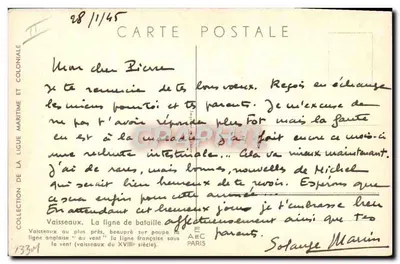 28/1/45
CARTE POSTALE
Mon cher Pierre
Je te remercie de tes bons voeux. Reçois en échange
les miens pour toi et tes parents. Je m'excuse de
ne pas t'avoir répondu plus tôt mais la faute
en est à la j'ai fait encore ce mois-ci
une rechute intestinale... Cela va mieux maintenant.
J'ai de rares, mais bonnes, nouvelles de Michel
qui serait bien heureux de te revoir. Espérons que
ce sera enfin pour cette année
En attendant cet heureux jour je t'embrasse bien
affectueusement ainsi que tes
parents.
Solange
COLLECTION DE LA LIGUE MARITIME ET COLONIALE
Vaisseaux. La ligne de bataille
Vaisseaux au plus près, beaupré sur poupe. A
ligne anglaise "au vent" la ligne française sous
le vent (vaisseaux du XVIIIe siècle).
PARIS